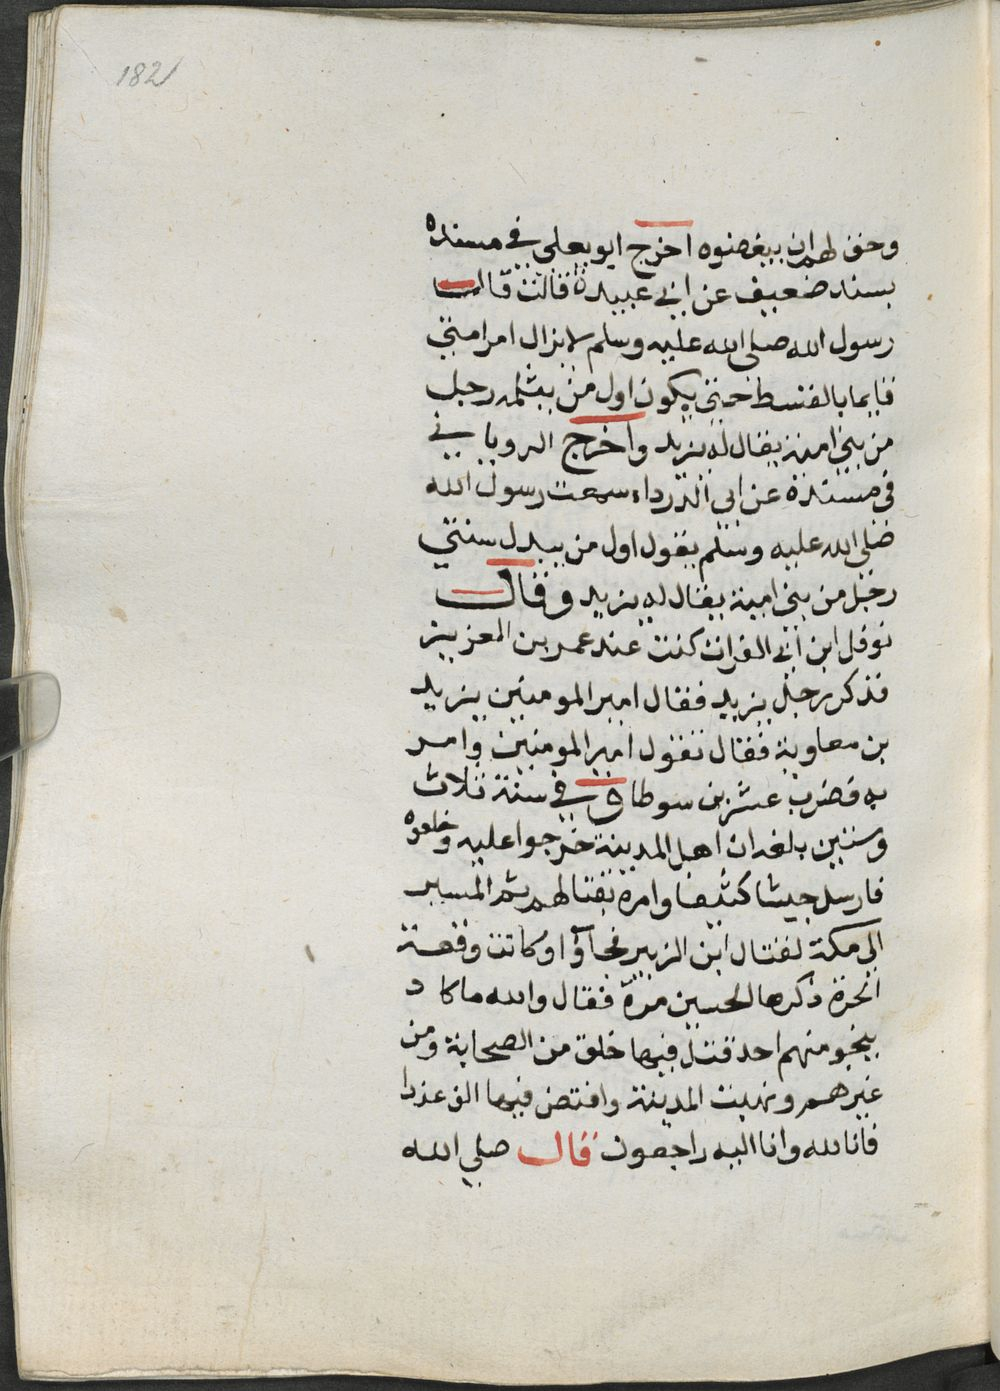 182
وحق لهم ان يبغضوه اخرج ابو يعلى في مسنده
بسند ضعيف عن ابي عبيدة قالت قال
رسول الله صلى الله عليه وسلم لا يزال امر امتي
قايما بالقسط حتى يكون اول من يثلمه رجل
من بني امية يقال له يزيد واخرج الروياني
في مسنده عن ابي الدرداء سمعت رسول الله
صلى الله عليه وسلم يقول اول من يبدل سنتي
رجل من بني امية يقال له يزيد وقال
نوفل ابن ابي الفرات كنت عند عمر بن العزيز
فذكر رجل يزيد فقال امير المومنين يزيد
بن معاوية فقال تقول امير المومنين وامر
به فضرب عشرين سوطا وفي سنة ثلاث
وستين بلغه ان اهل المدينة خرجوا عليه وخلعوه
فارسل جيشا كثيفا وامره بقتالهم ثم المسير
الى مكة لقتال ابن الزبير فجاؤا وكانت وقعة
الحرة ذكرها الحسين مرة فقال والله ما كاد
ينجو منهم احد قتل فيها خلق من الصحابة ومن
غيرهم ونهبت المدينة وافتض فيها الف عذرا
فانا لله وانا اليه راجعون قال صلي الله